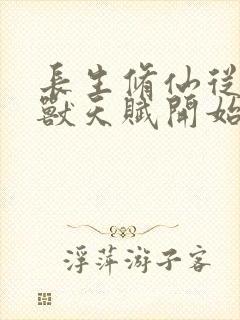 長生脩仙從
獸天賦開始
浮萍游子客